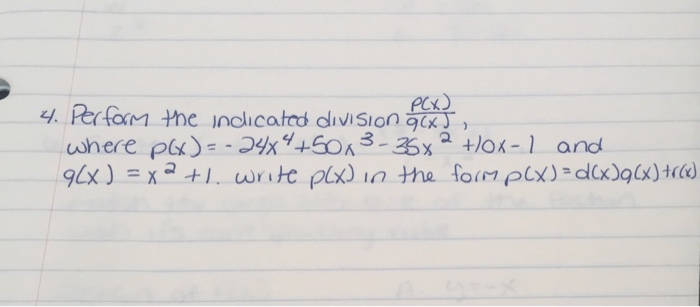 4. Perform the indicated division p(x)/q(x),
where p(x) = -24x⁴+50x³-35x²+10x-1 and
q(x) = x²+1. write p(x) in the form p(x)=d(x)q(x)+r(x)